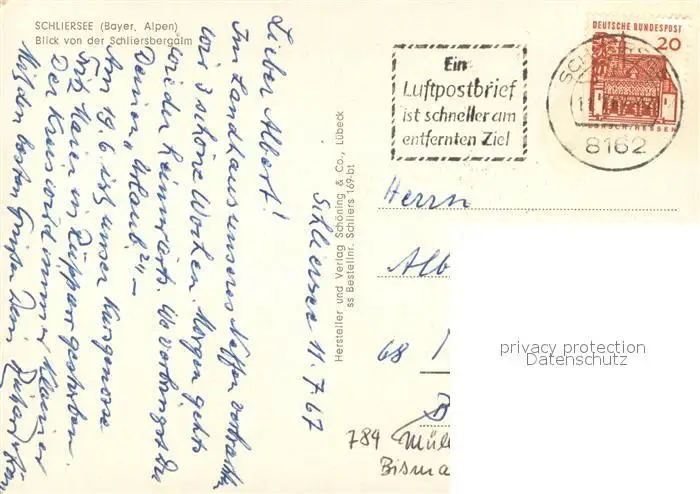 SCHLIERSEE (Bayer. Alpen)
Blick von der Schliersbergalm
Schliersee 11.7.67
Lieber Albert!
Im Landhaus unseres Neffen verbrachten
wir 3 schöne Wochen. Morgen gehts
wieder heimwärts. Wo verbringst Du
Deinen „Urlaub"? –
Am 19.6. ist unser Kursgenosse
Fritz Maier in gestorben.
Der Kreis wird immer kleiner
Mit den besten Grüßen Dein
Hersteller und Verlag Schöning & Co., Lübeck
ss Bestellnr. Schliers 169-bt
Ein
Luftpostbrief
ist schneller am
entfernten Ziel
DEUTSCHE BUNDESPOST
20
LORSCH/HESSEN
8162
Herrn
Alb
68
789 Müll
Bisma
privacy protection
Datenschutz